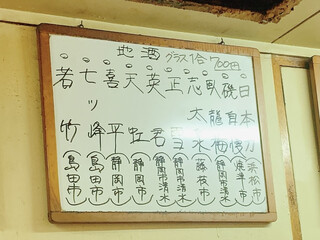 地酒 グラス1合 700円
日本 浜松市
磯自慢 焼津市
臥龍梅 静岡市清水
志太泉 藤枝市
正雪 静岡市清水
英君 静岡市清水
天虹 静岡市
喜平 静岡市
七ッ峰 島田市
若竹 島田市